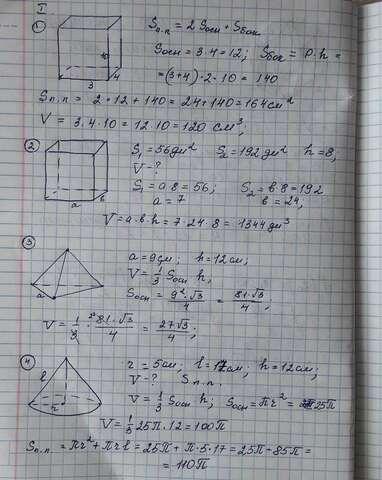 I
1
Sп.п = 2 Sосн + Sбок
Sосн = 3·4 = 12; Sбок = P·h =
= (3+4)·2·10 = 140
3 4
Sп.п = 2·12 + 140 = 24 + 140 = 164 см²
V = 3·4·10 = 12·10 = 120 см³;
2
S₁ = 56 дм² S₂ = 192 дм² h = 8;
V - ?
S₁ = a·8 = 56; S₂ = в·8 = 192
a = 7 в = 24;
a в
V = a·в·h = 7·24·8 = 1344 дм³
3
a = 9 см; h = 12 см;
V = 1/3 Sосн h;
Sосн = 9²·√3/4 = 81·√3/4;
a
V = 1/3 · 81·√3/4 = 27√3/4;
4
r = 5 см; l = 17 см; h = 12 см;
V - ? Sп.п.
V = 1/3 Sосн h; Sосн = πr² = 25π
l
r
V = 1/3 25π·12 = 100π
Sп.п. = πr² + πrl = 25π + π·5·17 = 25π + 85π =
= 110π